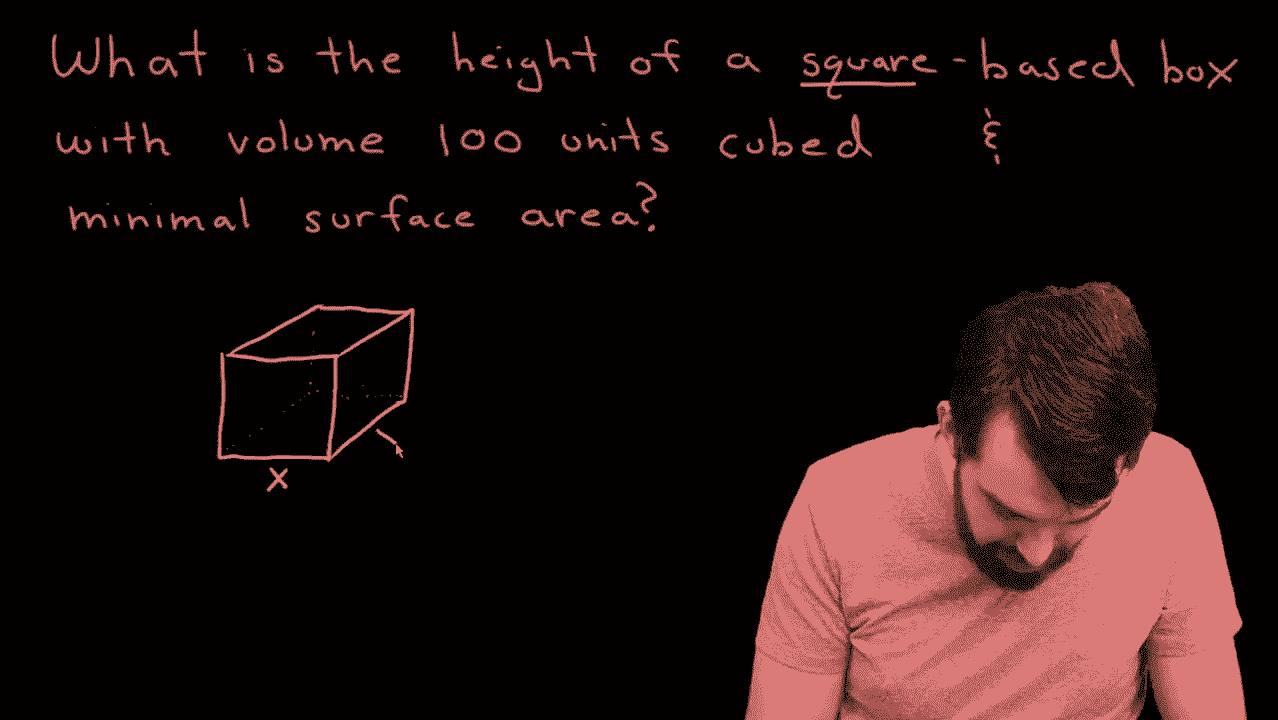 What is the height of a square-based box
with volume 100 units cubed &
minimal surface area?
x